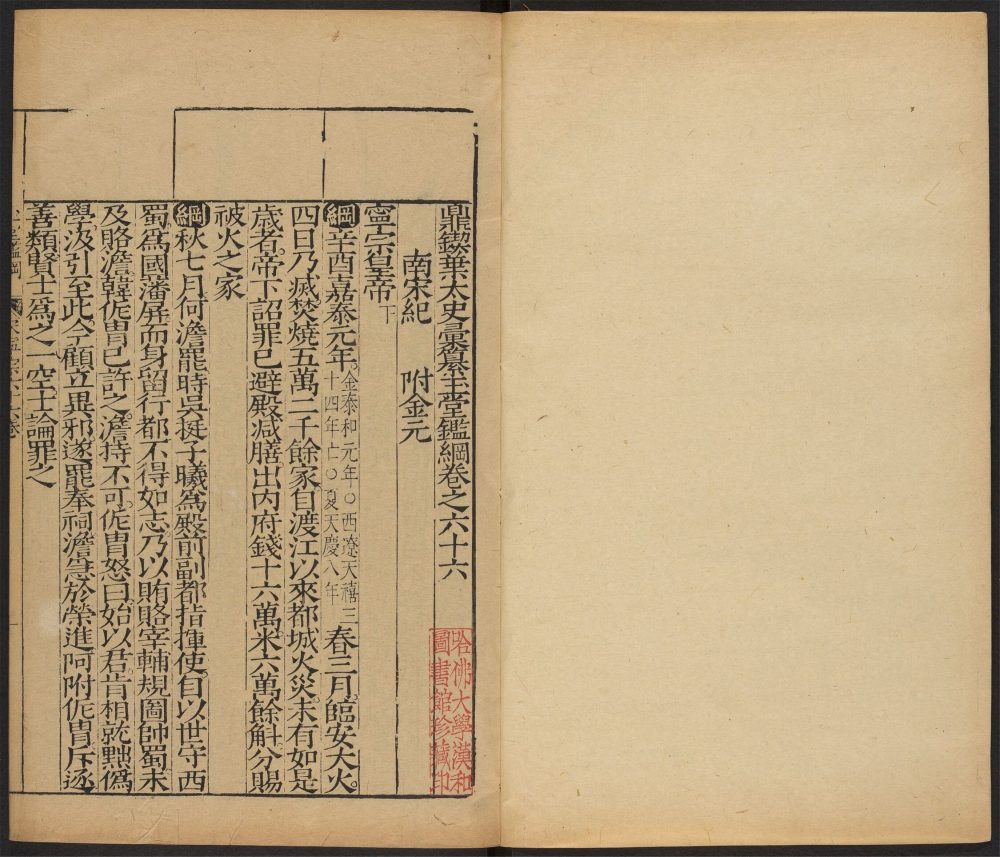 鼎鍥葉太史彙纂玉堂鑑綱卷之六十六
南宋紀 附金元
寧宗皇帝下
綱辛酉嘉泰元年金泰和元年○西遼天禧三十四年亡○夏天慶八年春三月臨安大火
四日乃滅焚燒五萬二千餘家自渡江以來都城火災未有如是
歲者帝下詔罪已避殿減膳出內府錢十六萬米六萬餘斛分賜
被火之家
綱秋七月何澹罷時吳挺子曦為殿前副都指揮使自以世守西
蜀為國藩屏而身留行都不得如志乃以賄賂宰輔規圖帥蜀未
及賂澹韓侂胄已許之澹持不可侂胄怒曰始以君肯相就黜偽
學汲引至此今顧立異邪遂罷奉祠澹急於榮進阿附侂胄斥逐
善類賢士為之一空士論罪之
哈佛大學漢和
圖書館珍藏印